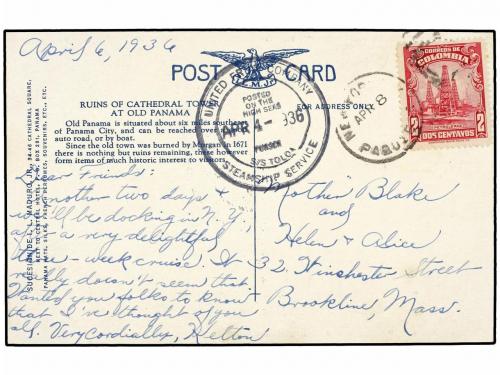 April 6, 1936
POST CARD
RUINS OF CATHEDRAL TOWER
AT OLD PANAMA
Old Panama is situated about six miles southeast
of Panama City, and can be reached over
auto road, or by boat.
Since the old town was burned by Morgan in 1671
there is nothing but ruins remaining, these however
form items of much historic interest to visitors.
FOR ADDRESS ONLY.
UNITED COMPANY
POSTED
ON THE
HIGH SEAS
APR 4- 1936
PURSER
S/S TOLOA
STEAMSHIP SERVICE
NEW
APR 8
PAQUE
CORREOS DE
COLOMBIA
2 2
DOS CENTAVOS
Dear Friends:
Another two days &
we'll be docking in N.Y.,
after a very delightful
week cruise. It
really doesn't seem that.
Wanted you folks to know
that I've thought of you
all. Very cordially, Helton
Mother Blake
and
Helen & Alice
32 Winchester Street
Brookline, Mass.